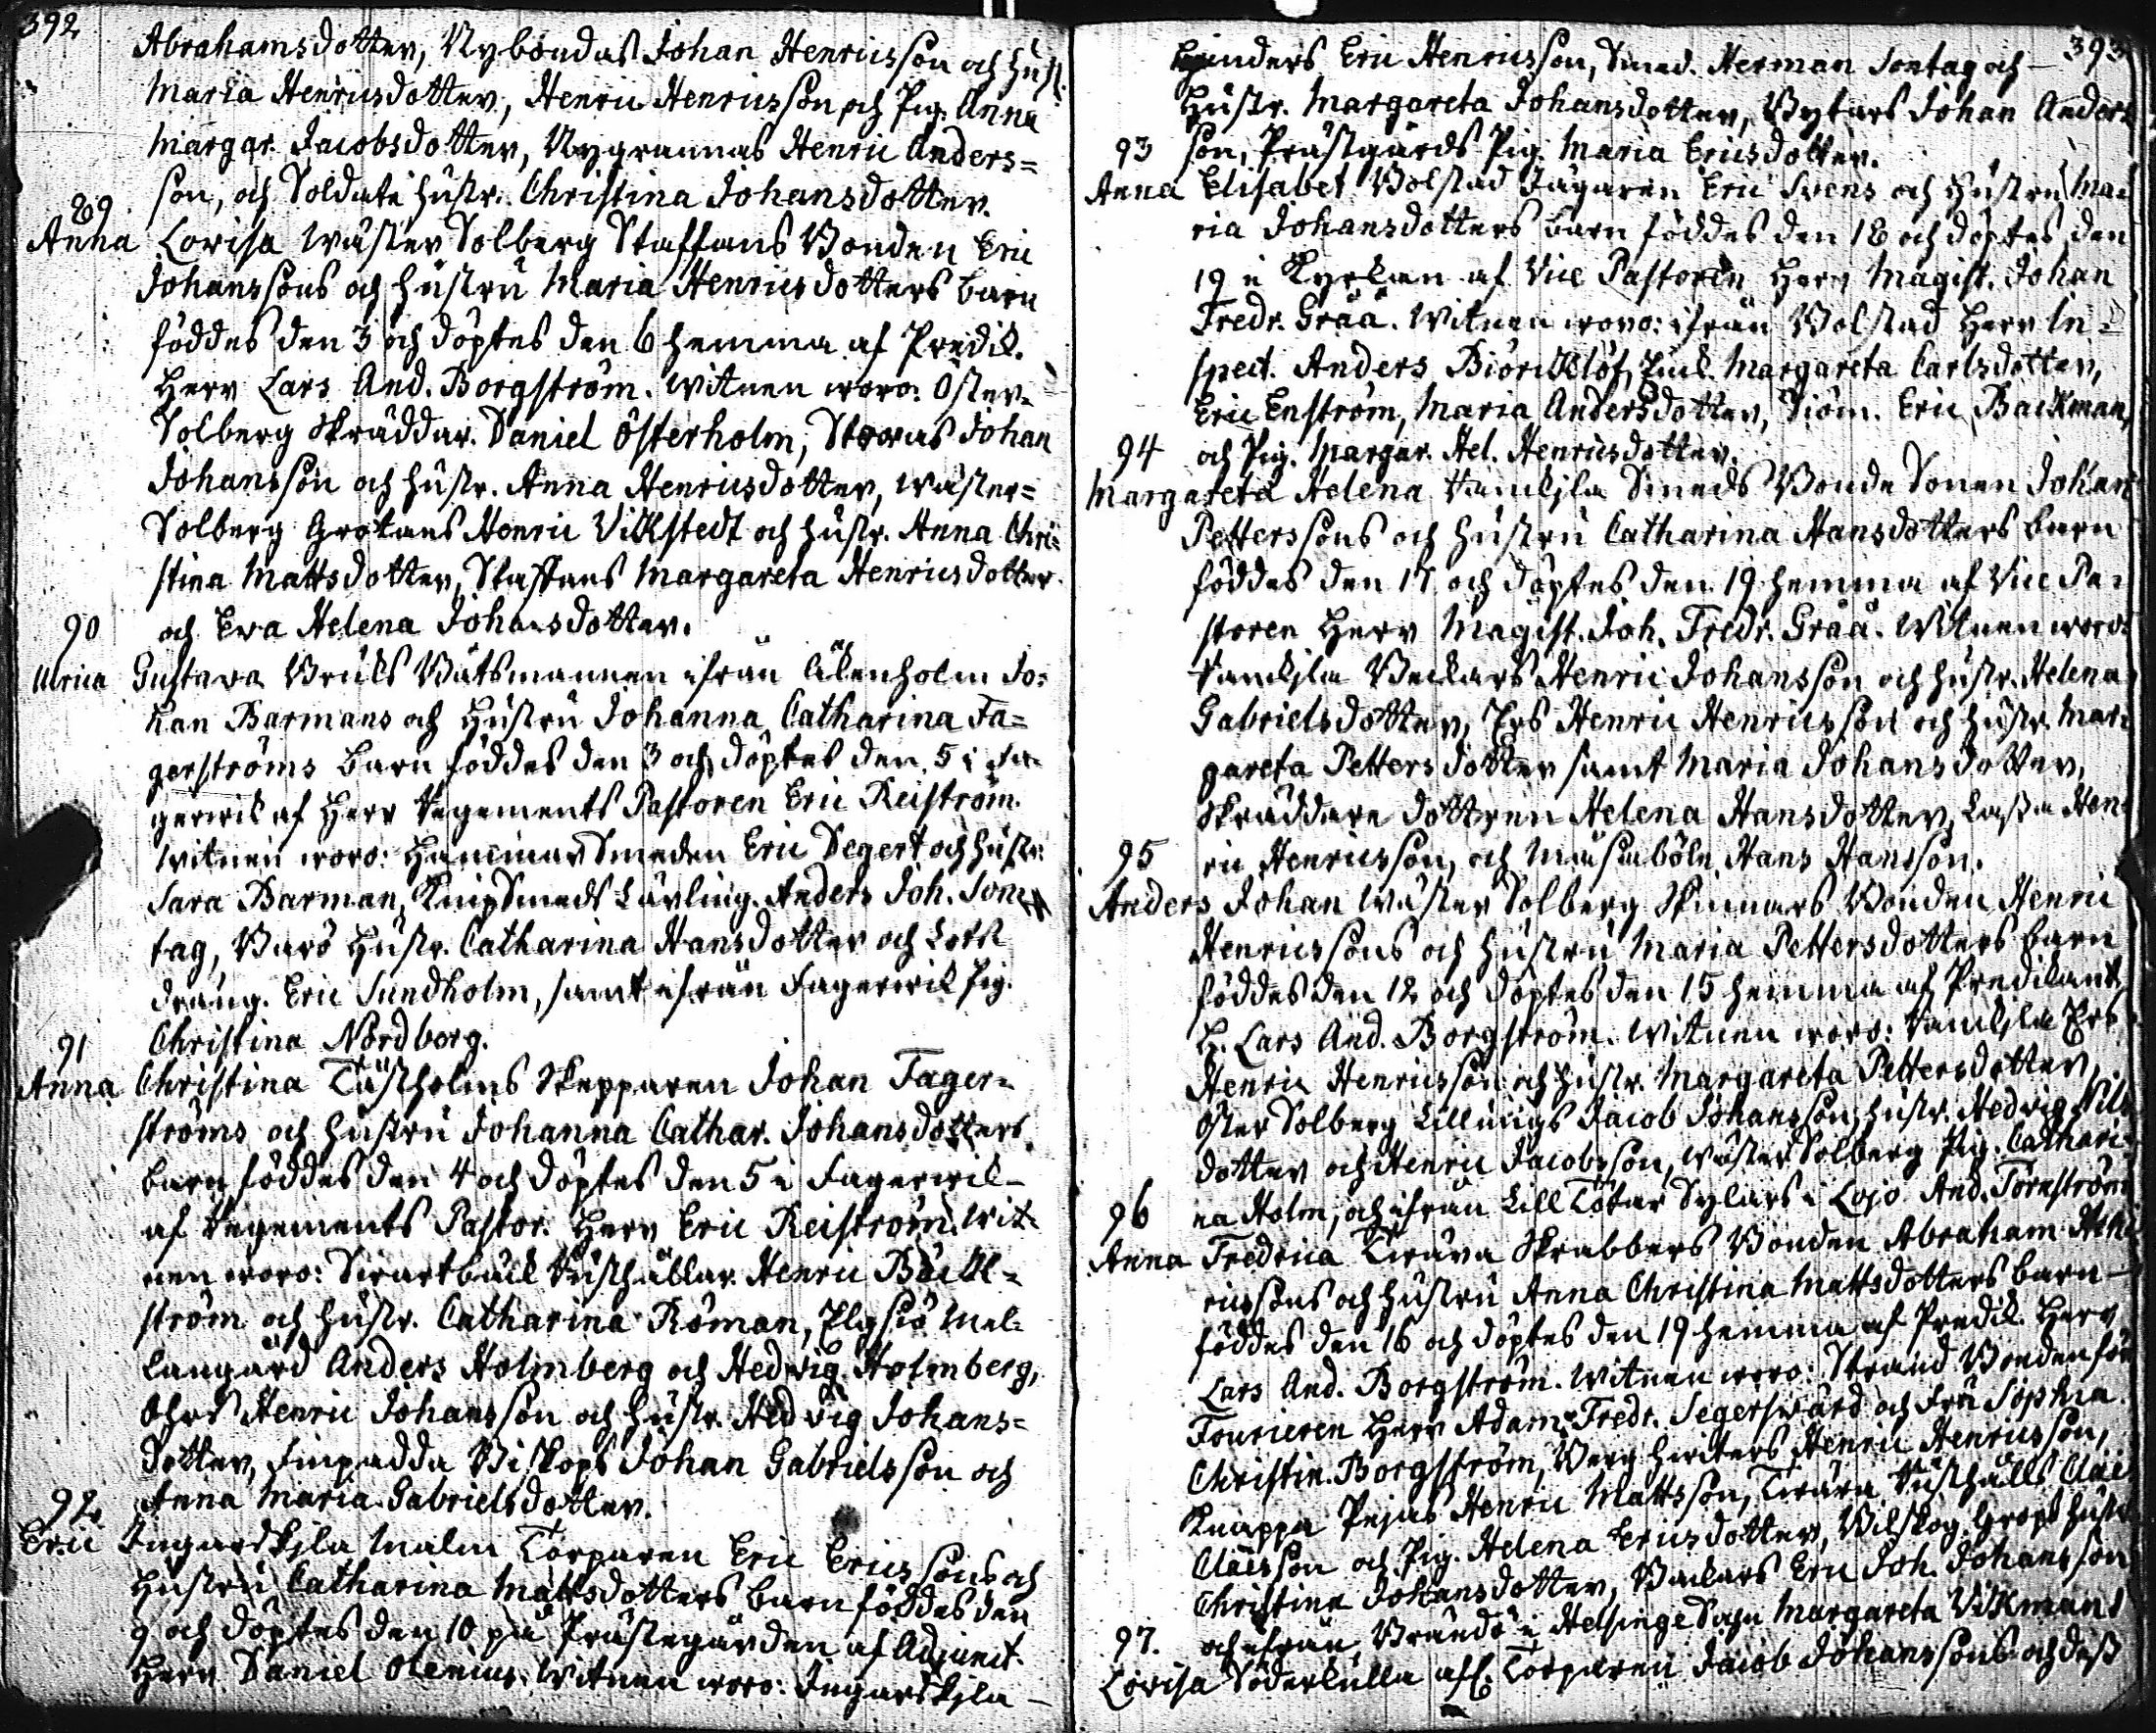 392
Abrahamsdotter, Nybondas Johan Henricsson och Hust.
Maria Henricsdotter, Henric Henricsson och Pig. Anna
Margar. Jacobsdotter, Nygrannas Henric Anders=
son, och Soldate hustr. Christina Johansdotter.
89
Anna Lovisa Wäster Solberg Staffans Bonden Eric
Johanssons och hustru Maria Henricsdotters barn
föddes den 3 och döptes den 6 hemma af Predik.
Herr Lars And. Borgström. Witnen woro: Öster=
Solberg Skräddar. Daniel Österholm, Storas Johan
Johansson och hustr. Anna Henricsdotter, Wäster=
Solberg Grotans Henric Vickstedt och hustr. Anna Chri=
stina Mattsdotter, Staffans Margareta Henricsdotter
90 och Eva Helena Johansdotter.
Ulrica Gustava Bruks Båtsmannen ifrån Åkenholm Jo=
han Barmans och Hustru Johanna Catharina Fa=
gerströms barn föddes den 3 och döptes den 5 i Fa=
gerwik af Herr Regements Pastoren Eric Reiström.
Witnen woro: Hammar Smeden Eric Segert och hustr.
Sara Barman, KnipSmeds Lärling. Anders Joh. Son
tag, Barö Hustr. Catharina Hansdotter och
dräng. Eric Sundholm, samt ifrån Fagerwik pig.
Christina Nordborg.
91
Anna Christina Täktholms Skepparen Johan Fager=
ströms och hustru Johanna Cathar. Johansdotters
barn föddes den 4 och döptes den 5 i Fagerwik
af Regements Pastor. Herr Eric Reiström. Wit=
nen woro: Swartbäck Rusthållar. Henric Bäck=
ström och hustr. Catharina Roman, Elgsiö Mel=
langård Anders Holmberg och Hedvig Holmberg,
Ohrs Henric Johansson och hustr. Hedvig Johans=
dotter, Finpadda Biskops Johan Gabrielsson och
92 Anna Maria Gabrielsdotter.
Eric Ingarskjla Malm Torparen Eric Ericssons och
Hustru Catharina Mattsdotters barn föddes den
9 och döptes den 10 på Prästegården af Adjunct.
Herr Daniel Olenius. Witnen woro: Ingarskjla
393
Eric Henricsson, Smed. Herman Sontag och
Hustr. Margareta Johansdotter, Bytars Johan Anders
93 son, Prästgårds Pig. Maria Ericsdotter.
Anna Elisabet Bolstad Jägaren Eric Svens och Hustru Ma=
ria Johansdotters barn föddes den 18 och döptes den
19 i Kyrkan af Vice Pastoren Herr Magist. Johan
Fredr. Gråå. Witnen woro: ifrån Bolstad Herr In=
spect. Anders Biörcklöf, Margareta Carlsdotter,
Eric Enström, Maria Andersdotter, Siöm. Eric Backman,
94 och Pig. Margar. Hel. Henricsdotter.
Margareta Helena Rankjla Smeds Bonde Sonen Johan
Petterssons och Hustru Catharina Hansdotters barn
föddes den 17 och döptes den 19 hemma af Vice Pa=
storen Herr Magist. Joh. Fredr. Gråå. Witnen woro:
Rankjla Backars Henric Johansson och hustr. Helena
Gabrielsdotter, Ers Henric Henricsson och hustr. Mar=
gareta Pettersdotter samt Maria Johansdotter,
Skräddare dottren Helena Hansdotter, Lassa Hen
95 ric Henricsson, och Måsaböle Hans Hansson.
Anders Johan Wäster Solberg Skinnars Bonden Henric
Henricssons och Hustru Maria Pettersdotters barn
föddes den 12 och döptes den 15 hemma af Predikant
H. Lars And. Borgström. Witnen woro: Rankjla Ers
Henric Henricsson och hustr. Margareta Pettersdotter,
Öster Solberg Lillungs Jacob Johansson, hustr. Hedvig Nils
dotter och Henric Jacobsson, Wäster Solberg Pig. Cathari=
96 na Holm, och ifrån Lill Tötar Sylars i Lojo And. Törnström
Anna Fredrica Tränra Skrabbers Bonden Abraham Hen
ricssons och hustru Anna Christina Mattsdotters barn
föddes den 16 och döptes den 19 hemma af Predik. Herr
Lars And. Borgström. Witnen woro: Strand Bonden för
Fourieren Herr Adam Fredr. Segersvärd och Fru Sophia
Christin. Borgström, Berg hwiters Henric Henricsson,
Knappa Pejas Henric Mattsson, Rusthålls Claes
Claesson och Pig. Helena Ericsdotter, Wilskog Grops hustr.
Christina Johansdotter, Backars Eric Joh. Johansson
97. och ifrån Brändö i Helsinge Sokn Margareta Vikmans
Lovisa Söderkulla afl. Torparen Jacob Johanssons och dess